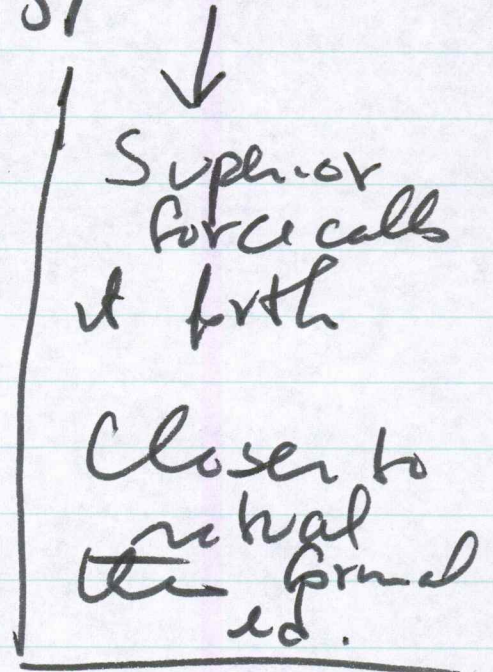 Superior
force calls
it forth
Closer to
ritual
than formal
ed.